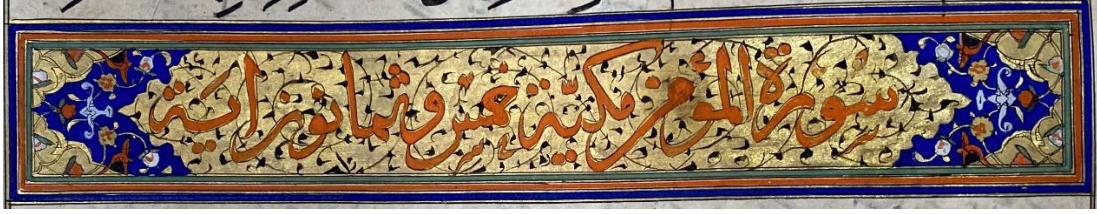 سورة المؤمن مكية خمس وثمانون اية